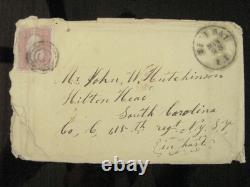 Mr. John W. Hutchinson
Hilton Head
South Carolina
Co. C, 115th regt N.Y.S.V.
In hast